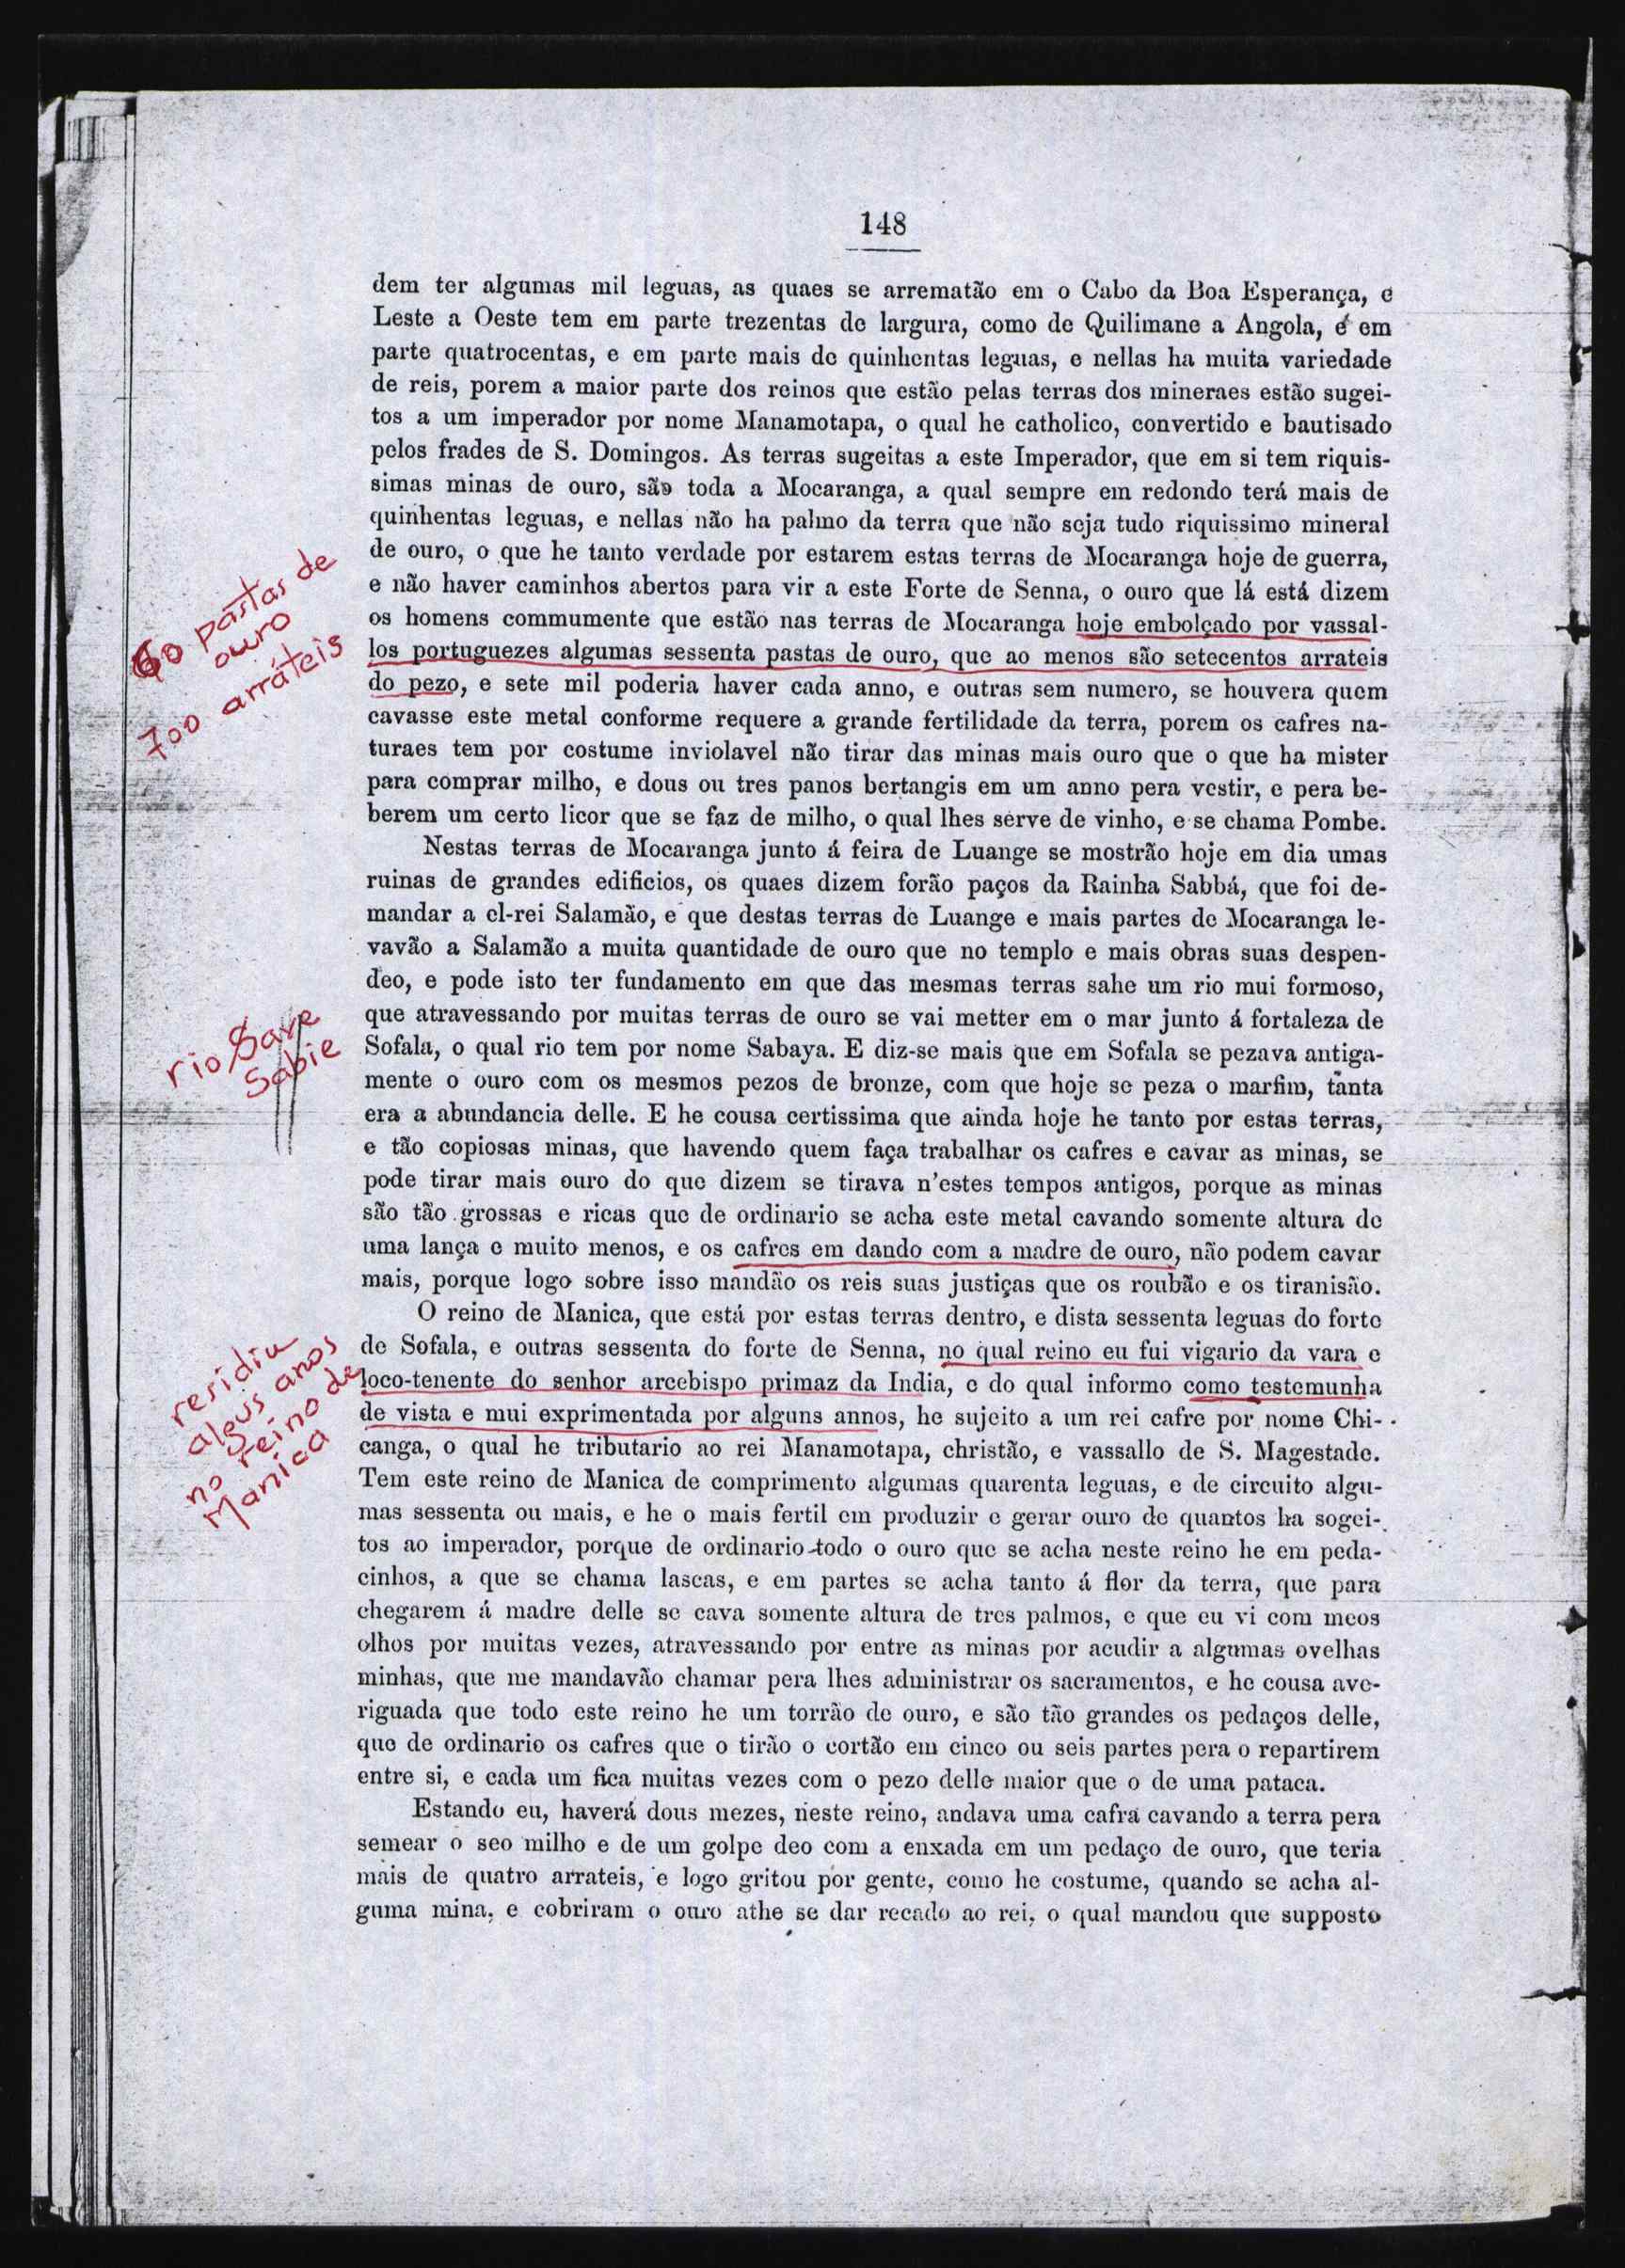 148
dem ter algumas mil leguas, as quaes se arrematão em o Cabo da Boa Esperança, e
Leste a Oeste tem em parte trezentas de largura, como de Quilimane a Angola, é em
parte quatrocentas, e em parte mais de quinhentas leguas, e nellas ha muita variedade
de reis, porem a maior parte dos reinos que estão pelas terras dos mineraes estão sugei-
tos a um imperador por nome Manamotapa, o qual he catholico, convertido e bautisado
pelos frades de S. Domingos. As terras sugeitas a este Imperador, que em si tem riquis-
simas minas de ouro, são toda a Mocaranga, a qual sempre em redondo terá mais de
quinhentas leguas, e nellas não ha palmo da terra que não seja tudo riquissimo mineral
de ouro, o que he tanto verdade por estarem estas terras de Mocaranga hoje de guerra,
e não haver caminhos abertos para vir a este Forte de Senna, o ouro que lá está dizem
os homens commumente que estão nas terras de Mocaranga hoje embolçado por vassal-
los portuguezes algumas sessenta pastas de ouro, que ao menos são setecentos arrateis
do pezo, e sete mil poderia haver cada anno, e outras sem numero, se houvera quem
cavasse este metal conforme requere a grande fertilidade da terra, porem os cafres na-
turaes tem por costume inviolavel não tirar das minas mais ouro que o que ha mister
para comprar milho, e dous ou tres panos bertangis em um anno pera vestir, e pera be-
berem um certo licor que se faz de milho, o qual lhes serve de vinho, e se chama Pombe.
60 pastas de
ouro
700 arráteis
Nestas terras de Mocaranga junto á feira de Luange se mostrão hoje em dia umas
ruinas de grandes edificios, os quaes dizem forão paços da Rainha Sabbá, que foi de-
mandar a el-rei Salamão, e que destas terras de Luange e mais partes de Mocaranga le-
vavão a Salamão a muita quantidade de ouro que no templo e mais obras suas despen-
deo, e pode isto ter fundamento em que das mesmas terras sahe um rio mui formoso,
que atravessando por muitas terras de ouro se vai metter em o mar junto á fortaleza de
Sofala, o qual rio tem por nome Sabaya. E diz-se mais que em Sofala se pezava antiga-
mente o ouro com os mesmos pezos de bronze, com que hoje se peza o marfim, tanta
era a abundancia delle. E he cousa certissima que ainda hoje he tanto por estas terras,
e tão copiosas minas, que havendo quem faça trabalhar os cafres e cavar as minas, se
pode tirar mais ouro do que dizem se tirava n'estes tempos antigos, porque as minas
são tão grossas e ricas que de ordinario se acha este metal cavando somente altura de
uma lança e muito menos, e os cafres em dando com a madre de ouro, não podem cavar
mais, porque logo sobre isso mandão os reis suas justiças que os roubão e os tiranisão.
rio Save
Sabie
O reino de Manica, que está por estas terras dentro, e dista sessenta leguas do forte
de Sofala, e outras sessenta do forte de Senna, no qual reino eu fui vigario da vara e
loco-tenente do senhor arcebispo primaz da India, e do qual informo como testemunha
de vista e mui exprimentada por alguns annos, he sujeito a um rei cafre por nome Chi-
canga, o qual he tributario ao rei Manamotapa, christão, e vassallo de S. Magestade.
Tem este reino de Manica de comprimento algumas quarenta leguas, e de circuito algu-
mas sessenta ou mais, e he o mais fertil em produzir e gerar ouro de quantos ha sogei-
tos ao imperador, porque de ordinario todo o ouro que se acha neste reino he em peda-
cinhos, a que se chama lascas, e em partes se acha tanto á flor da terra, que para
chegarem á madre delle se cava somente altura de tres palmos, e que eu vi com meos
olhos por muitas vezes, atravessando por entre as minas por acudir a algumas ovelhas
minhas, que me mandavão chamar pera lhes administrar os sacramentos, e he cousa ave-
riguada que todo este reino he um torrão de ouro, e são tão grandes os pedaços delle,
que de ordinario os cafres que o tirão o cortão em cinco ou seis partes pera o repartirem
entre si, e cada um fica muitas vezes com o pezo delle maior que o de uma pataca.
residiu
algus anos
no reino de
Manica
Estando eu, haverá dous mezes, neste reino, andava uma cafra cavando a terra pera
semear o seo milho e de um golpe deo com a enxada em um pedaço de ouro, que teria
mais de quatro arrateis, e logo gritou por gente, como he costume, quando se acha al-
guma mina, e cobriram o ouro athe se dar recado ao rei, o qual mandou que supposto